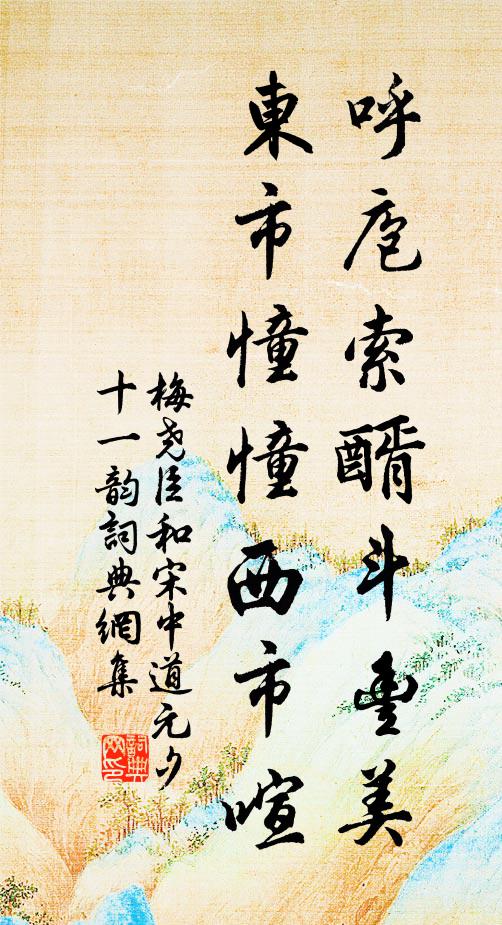 呼庖索醑斗豐美
東市憧憧西市喧
梅堯臣和宋中道元夕
十一韵詞典網集
詞典網印